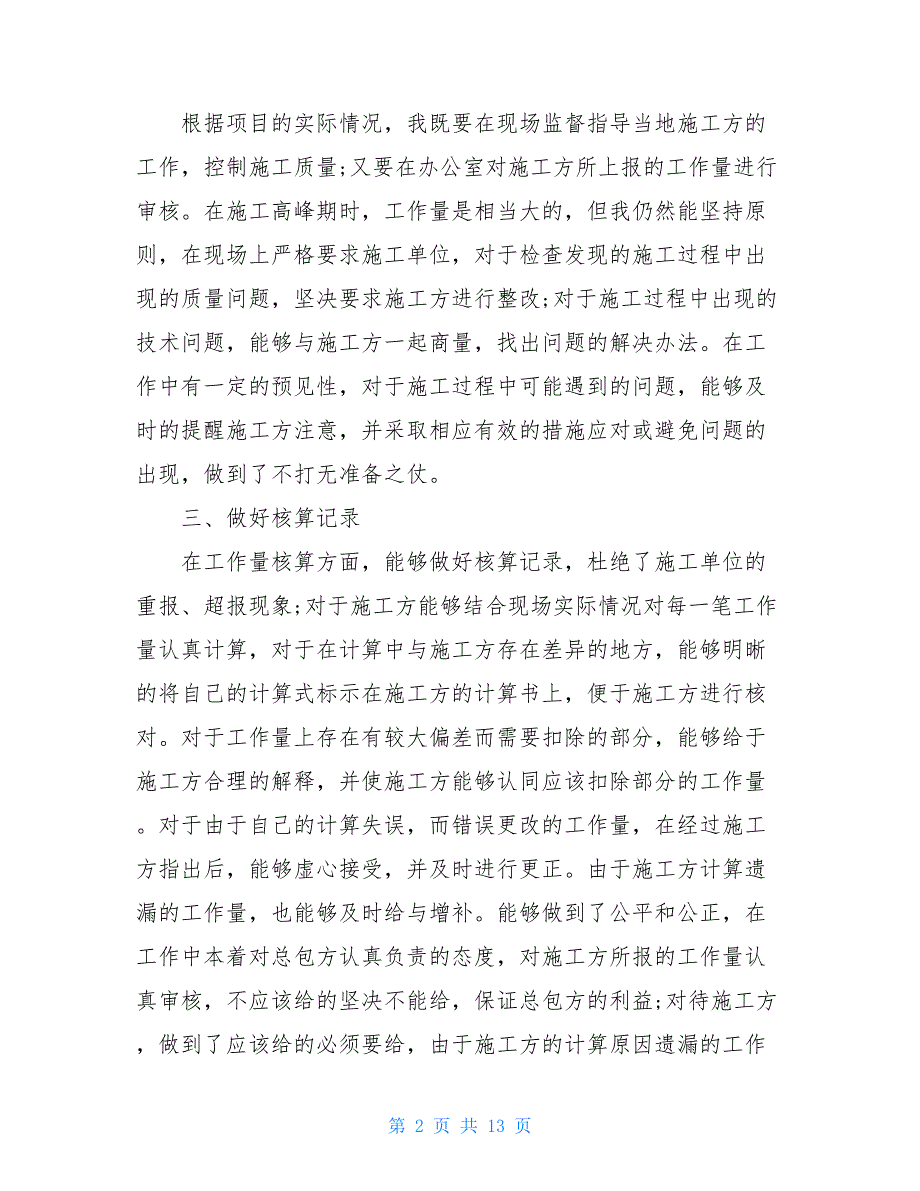 根据项目的实际情况，我既要在现场监督指导当地施工方的
工作，控制施工质量;又要在办公室对施工方所上报的工作量进行
审核。在施工高峰期时，工作量是相当大的，但我仍然能坚持原
则，在现场上严格要求施工单位，对于检查发现的施工过程中出
现的质量问题，坚决要求施工方进行整改;对于施工过程中出现的
技术问题，能够与施工方一起商量，找出问题的解决办法。在工
作中有一定的预见性，对于施工过程中可能遇到的问题，能够及
时的提醒施工方注意，并采取相应有效的措施应对或避免问题的
出现，做到了不打无准备之仗。
三、做好核算记录
在工作量核算方面，能够做好核算记录，杜绝了施工单位的
重报、超报现象;对于施工方能够结合现场实际情况对每一笔工作
量认真计算，对于在计算中与施工方存在差异的地方，能够明晰
的将自己的计算式标示在施工方的计算书上，便于施工方进行核
对。对于工作量上存在有较大偏差而需要扣除的部分，能够给于
施工方合理的解释，并使施工方能够认同应该扣除部分的工作量
。对于由于自己的计算失误，而错误更改的工作量，在经过施工
方指出后，能够虚心接受，并及时进行更正。由于施工方计算遗
漏的工作量，也能够及时给与增补。能够做到了公平和公正，在
工作中本着对总包方认真负责的态度，对施工方所报的工作量认
真审核，不应该给的坚决不能给，保证总包方的利益;对待施工方
，做到了应该给的必须要给，由于施工方的计算原因遗漏的工作
第 2 页 共 13 页